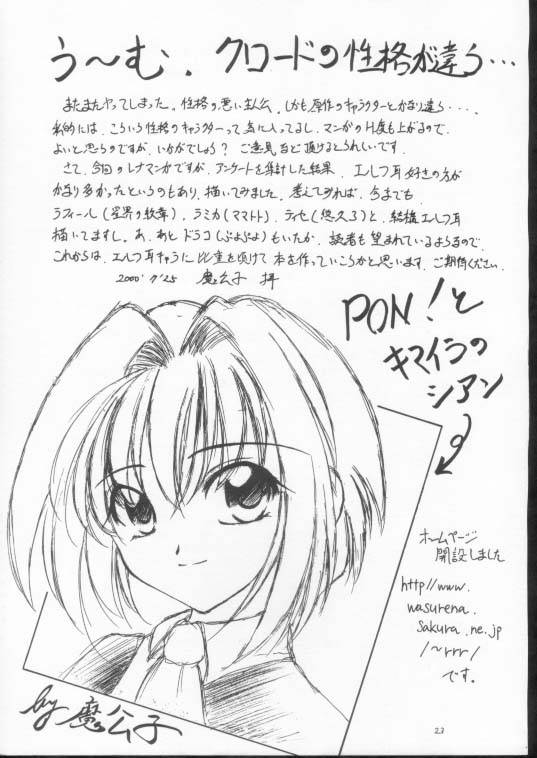 う～む．クロードの性格が違う…
またまたヤってしまった。性格の悪い主人公、しかも原作のキャラクターとかなり違う・・・・。
私的には、こういう性格のキャラクターって気に入ってるし、マンガのH度も上がるので、
よいと思うのですが、いかがでしょう？ ご意見など頂けるとうれしいです。
さて、今回のレナマンガですが、アンケートを集計した結果、エルフ耳好きの方が
かなり多かったというのもあり、描いてみました。考えてみれば、今までも
ラフィール(星界の紋章)、ラミカ(ママトト)、ティセ(悠久3)と、結構エルフ耳
描いてますし。あ、あとドラコ(ぷよぷよ)もいたか。読者も望まれているようなので、
これからは、エルフ耳キャラに比重を傾けて本を作っていこうかと思います。ご期待ください。
2000' 7'25 魔公子 拝
PON！と
キマイラの
シアン
ホームページ
開設しました
http//www.
wasurena.
sakura.ne.jp
/~rrr/
です。
by 魔公子
23